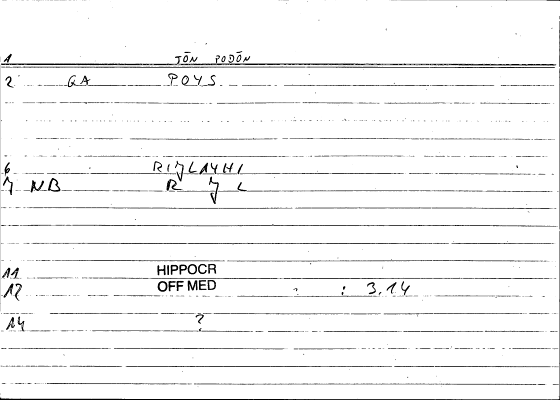 1 TŌN PODŌN
2 GA POYS
6
7 NB R
11 HIPPOCR
12 OFF MED : 3.14
14 ?